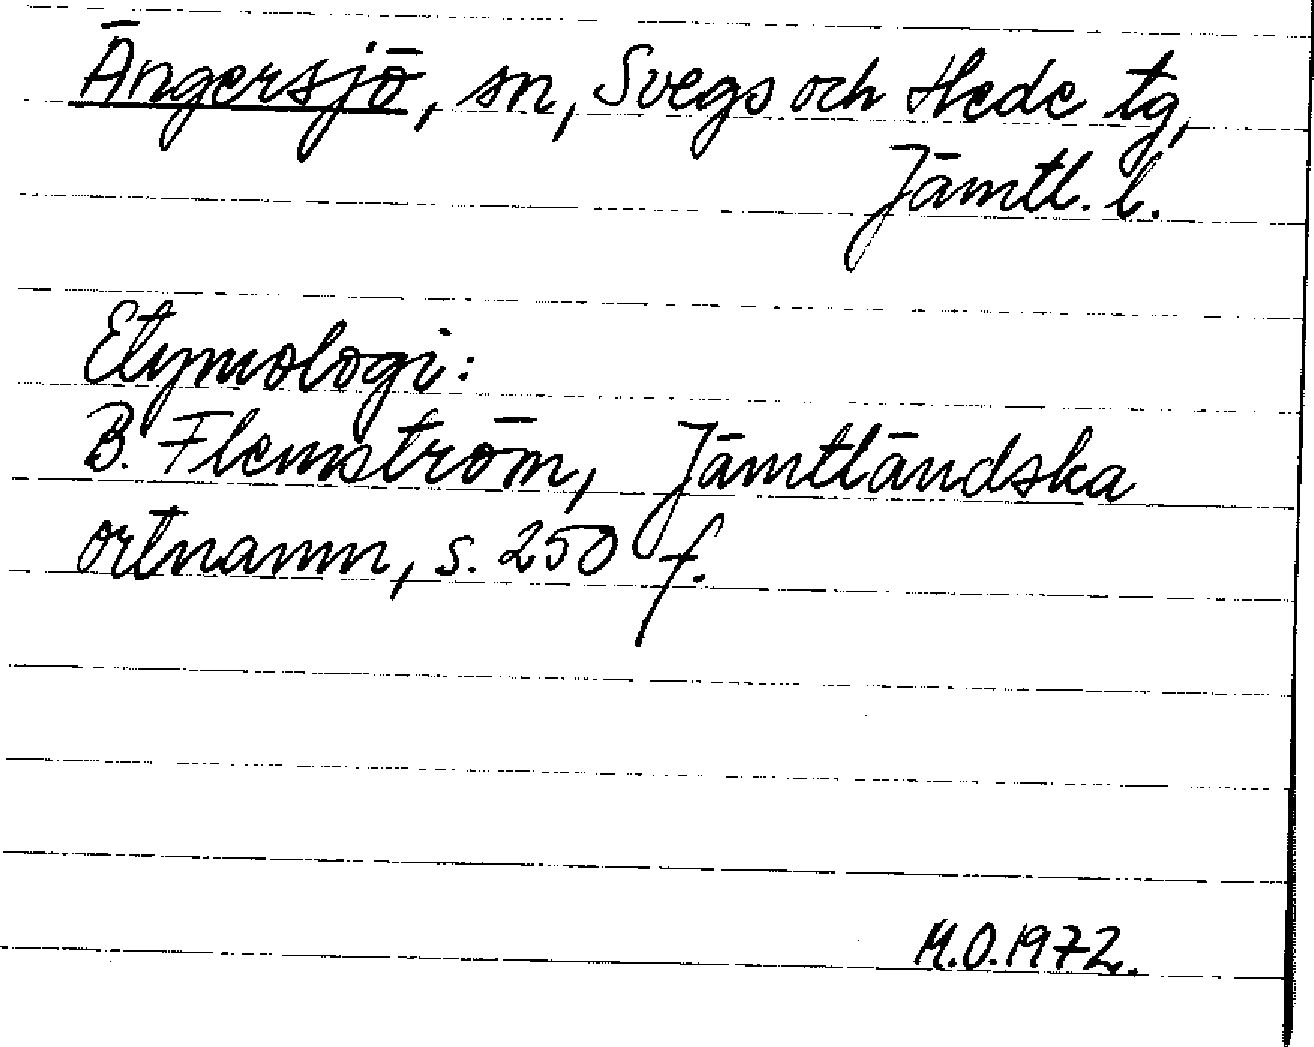 Ängersjö, sn, Svegs och Hede tg,
Jämtl. l.
Etymologi:
B. Flemström, Jämtländska
ortnamn, s. 250 f.
M.O. 1972.